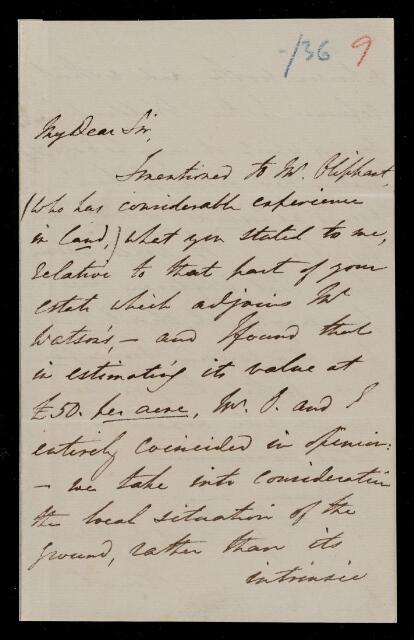 -/36 9
My Dear Sir,
I mentioned to Mr. Oliphant,
(who has considerable experience
in land,) what you stated to me,
relative to that part of your
estate which adjoins Mr
Watson's, - and I found that
in estimating its value at
£50. per acre, Mr. O. and I
entirely coincided in opinion:
- we take into consideration
the local situation of the
ground, rather than its
intrinsic